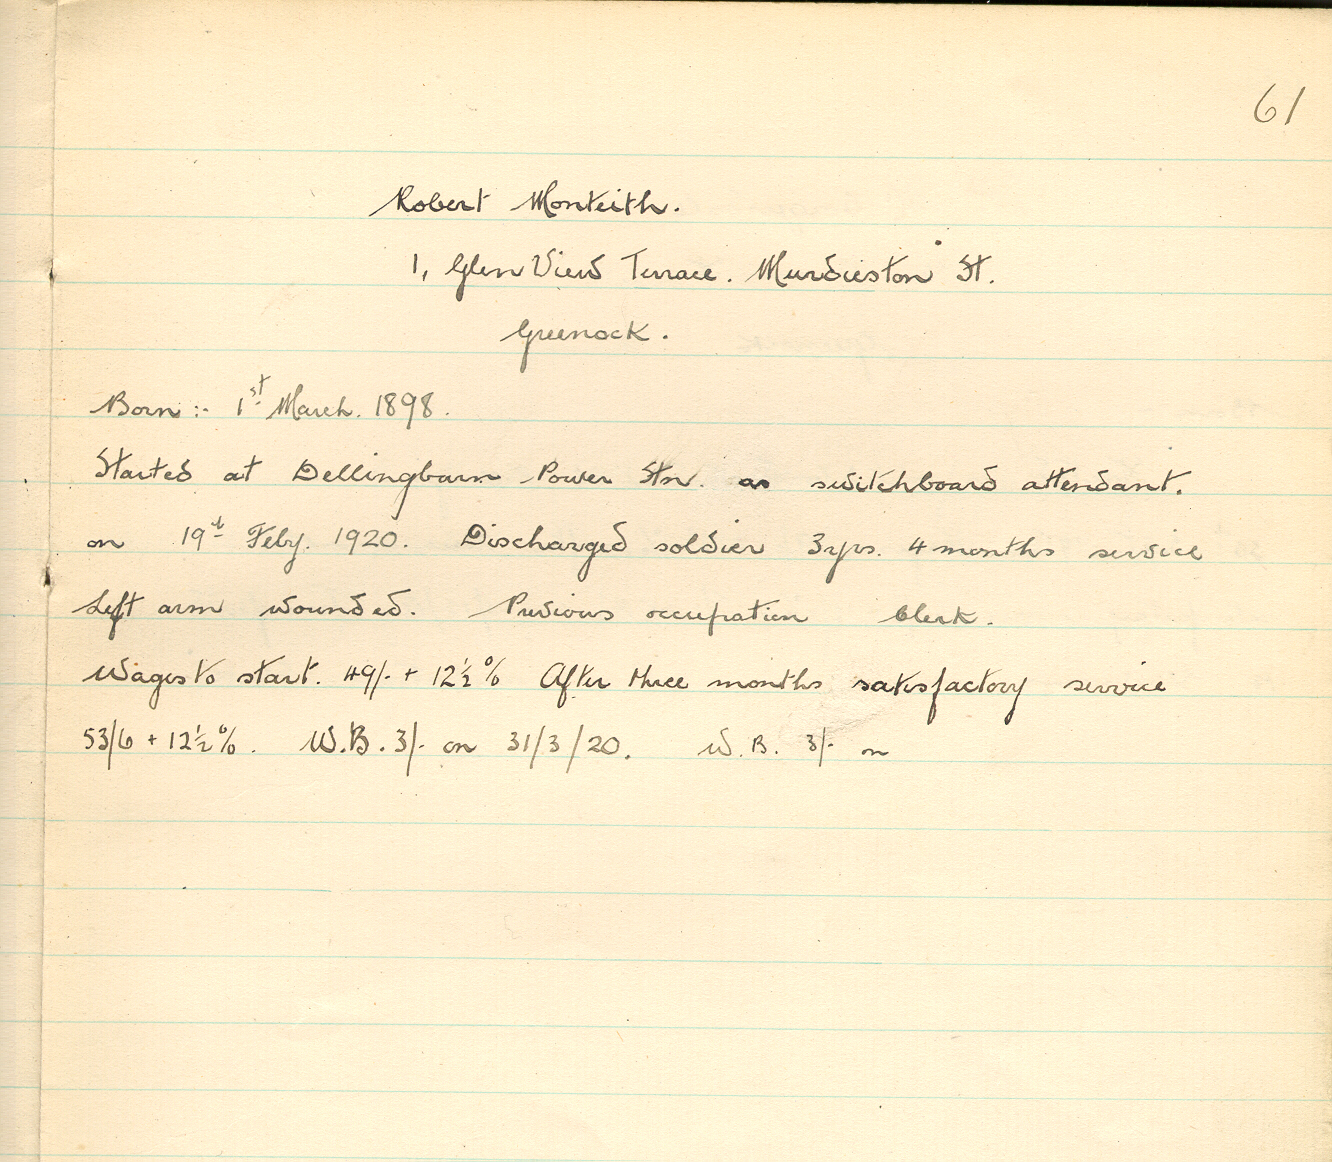 61
Robert Monteith.
1, Glen View Terrace. Murdieston St.
Greenock.
Born :- 1st March. 1898.
Started at Dellingburn Power Stn. as switchboard attendant.
on 19th Feby. 1920. Discharged soldier 3yrs. 4 months service
Left arm wounded. Previous occupation Clerk.
Wages to start. 49/- + 12½% After three months satisfactory service
53/6 + 12½%. W.B. 3/- on 31/3/20. W.B. 3/- on